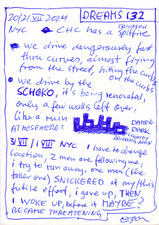 20/21 VII 2024 DREAMS 132
NYC • CHC has a spitfire
TRIUMPH
• we drive dangerously fast
thru curves, almost flying
from the street, hitting the curb
and the curbs
• we drive by the
SCHOKO, it's being renovated,
only a few walls left over,
like a ruin
ATMOSPHERE: DANGER
DARK
3/ VII / VII NYC 1 i have to change
location, 2 men are following me,
i try to run away, one man (the
taller one) SNICKERED at my/this
futile effort, i gave up, THEN
I WOKE UP, before it MAYBE?
BECAME THREATENING